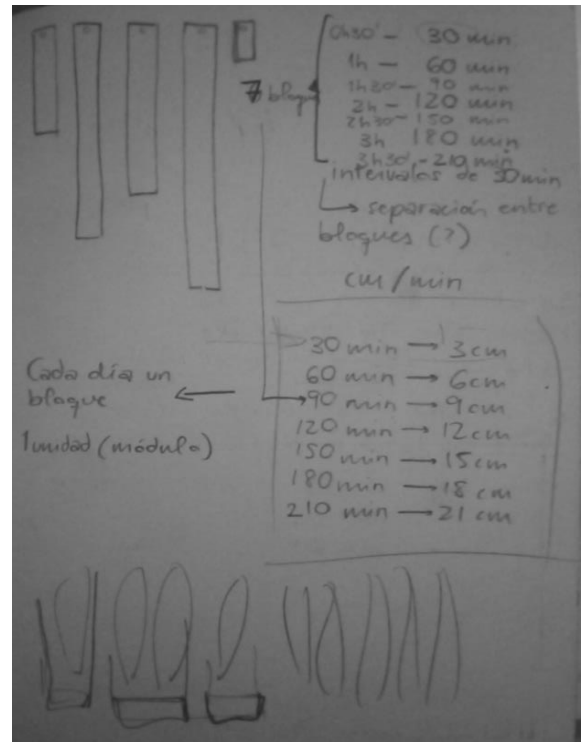 7 bloques
0h30' - 30 min
1h - 60 min
1h30 - 90 min
2h - 120 min
2h30 - 150 min
3h 180 min
3h30' - 210 min
intervalos de 30 min
separación entre
bloques (?)
cm/min
30 min → 3 cm
60 min → 6 cm
90 min → 9 cm
120 min → 12 cm
150 min → 15 cm
180 min → 18 cm
210 min → 21 cm
Cada día un
bloque
1 unidad (módulo)